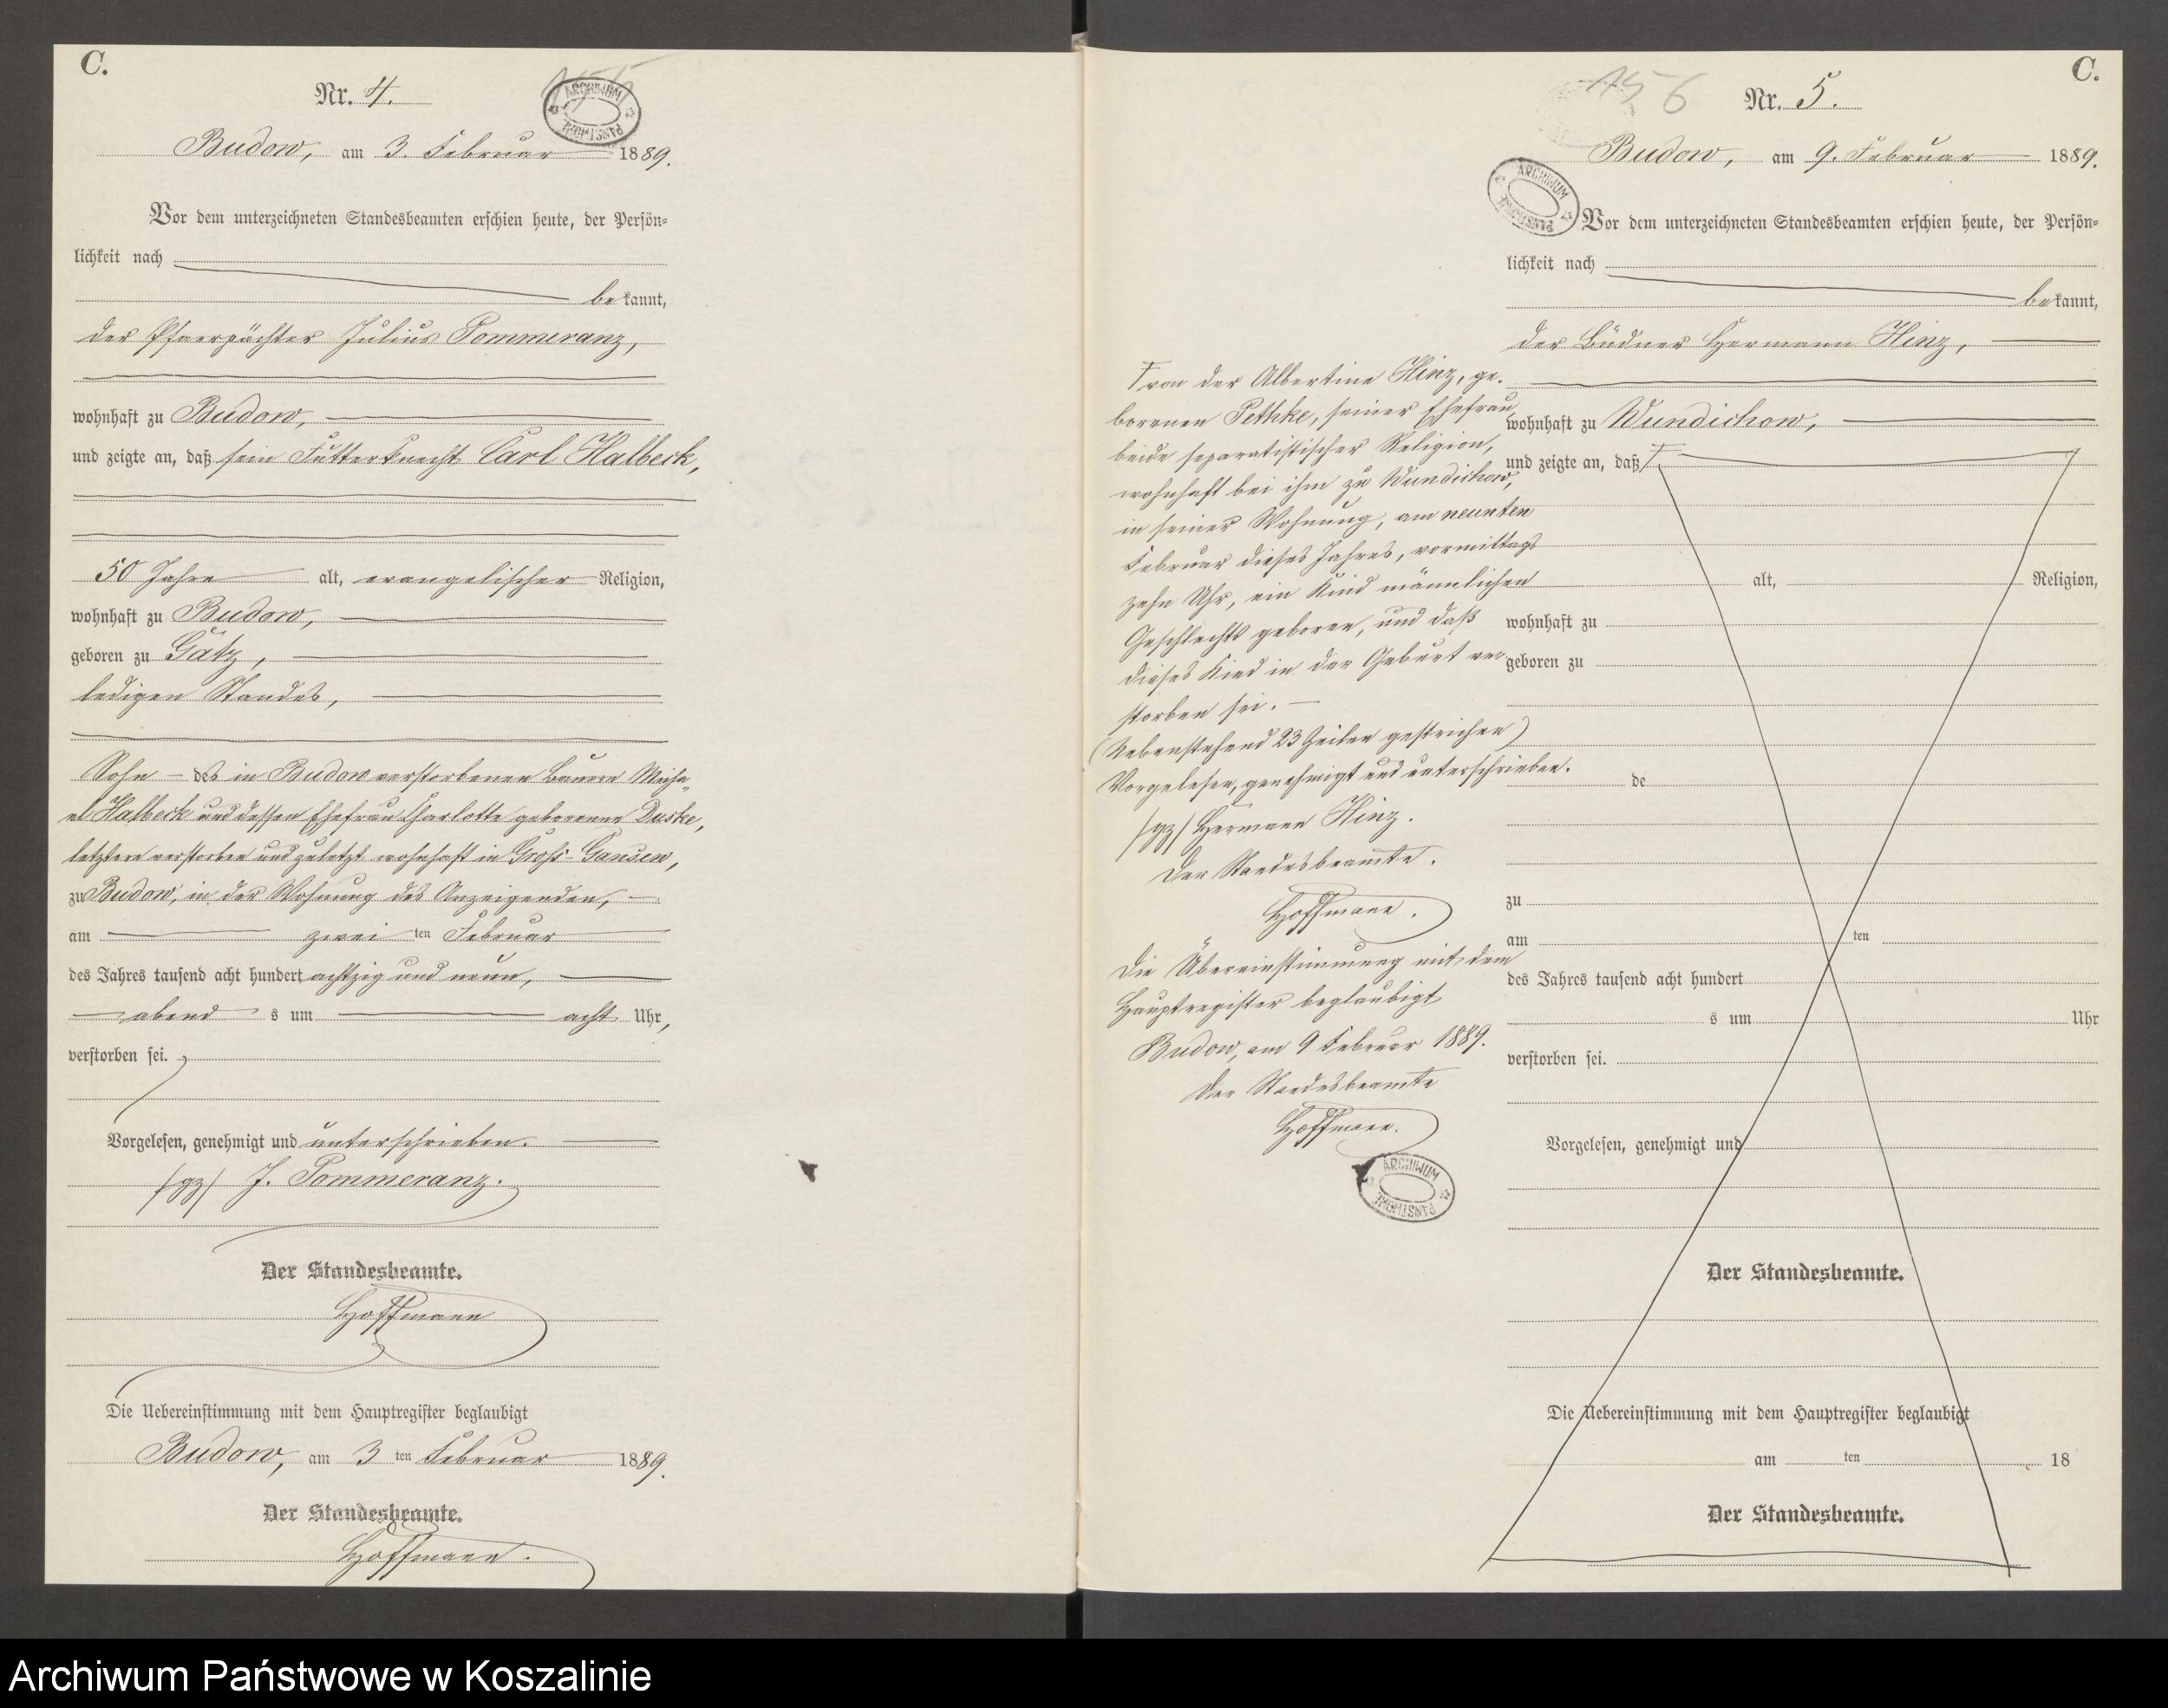 C.
Nr. 4.
155
ARCHIWUM PAŃSTWOWE
Budow, am 3. Februar 1889.
Vor dem unterzeichneten Standesbeamten erschien heute, der Persön-
lichkeit nach
bekannt,
der Pfarrpächter Julius Pommeranz,
wohnhaft zu Budow,
und zeigte an, daß sein Futterknecht Carl Halbeck,
50 Jahre alt, evangelischer Religion,
wohnhaft zu Budow,
geboren zu Gatz,
ledigen Standes,
Sohn - des in Budow verstorbenen Bauern Micha-
el Halbeck und dessen Ehefrau Charlotte geborenen Duske,
letztere verstorben und zuletzt wohnhaft in Groß-Gansen,
zu Budow, in der Wohnung des Anzeigenden, -
am zwei ten Februar
des Jahres tausend acht hundert achtzig und neun,
abend s um acht Uhr,
verstorben sei.
Vorgelesen, genehmigt und unterschrieben.
/gz/ J. Pommeranz.
Der Standesbeamte.
Hoffmann
Die Uebereinstimmung mit dem Hauptregister beglaubigt
Budow, am 3 ten Februar 1889.
Der Standesbeamte.
Hoffmann.
C.
156
Nr. 5.
Budow, am 9. Februar 1889.
ARCHIWUM PAŃSTWOWE
Vor dem unterzeichneten Standesbeamten erschien heute, der Persön-
lichkeit nach
bekannt,
der Büdner Hermann Hinz,
wohnhaft zu Wundichow,
und zeigte an, daß
alt, Religion,
wohnhaft zu
geboren zu
de
zu
am ten
des Jahres tausend acht hundert
s um Uhr
verstorben sei.
Vorgelesen, genehmigt und
Der Standesbeamte.
Die Uebereinstimmung mit dem Hauptregister beglaubigt
am ten 18
Der Standesbeamte.
von der Albertine Hinz, ge-
borenen Pethke, seiner Ehefrau,
beide separatistischer Religion,
wohnhaft bei ihm zu Wundichow,
in seiner Wohnung, am neunten
Februar dieses Jahres, vormittags
zehn Uhr, ein Kind männlichen
Geschlechts geboren, und daß
dieses Kind in der Geburt ver-
storben sei. -
(Nebenstehend 23 Zeilen gestrichen)
Vorgelesen, genehmigt und unterschrieben.
/gz/ Hermann Hinz.
Der Standesbeamte.
Hoffmann.
Die Übereinstimmung mit dem
Hauptregister beglaubigt
Budow, am 9 Februar 1889.
Der Standesbeamte
Hoffmann.
ARCHIWUM PAŃSTWOWE
Archiwum Państwowe w Koszalinie